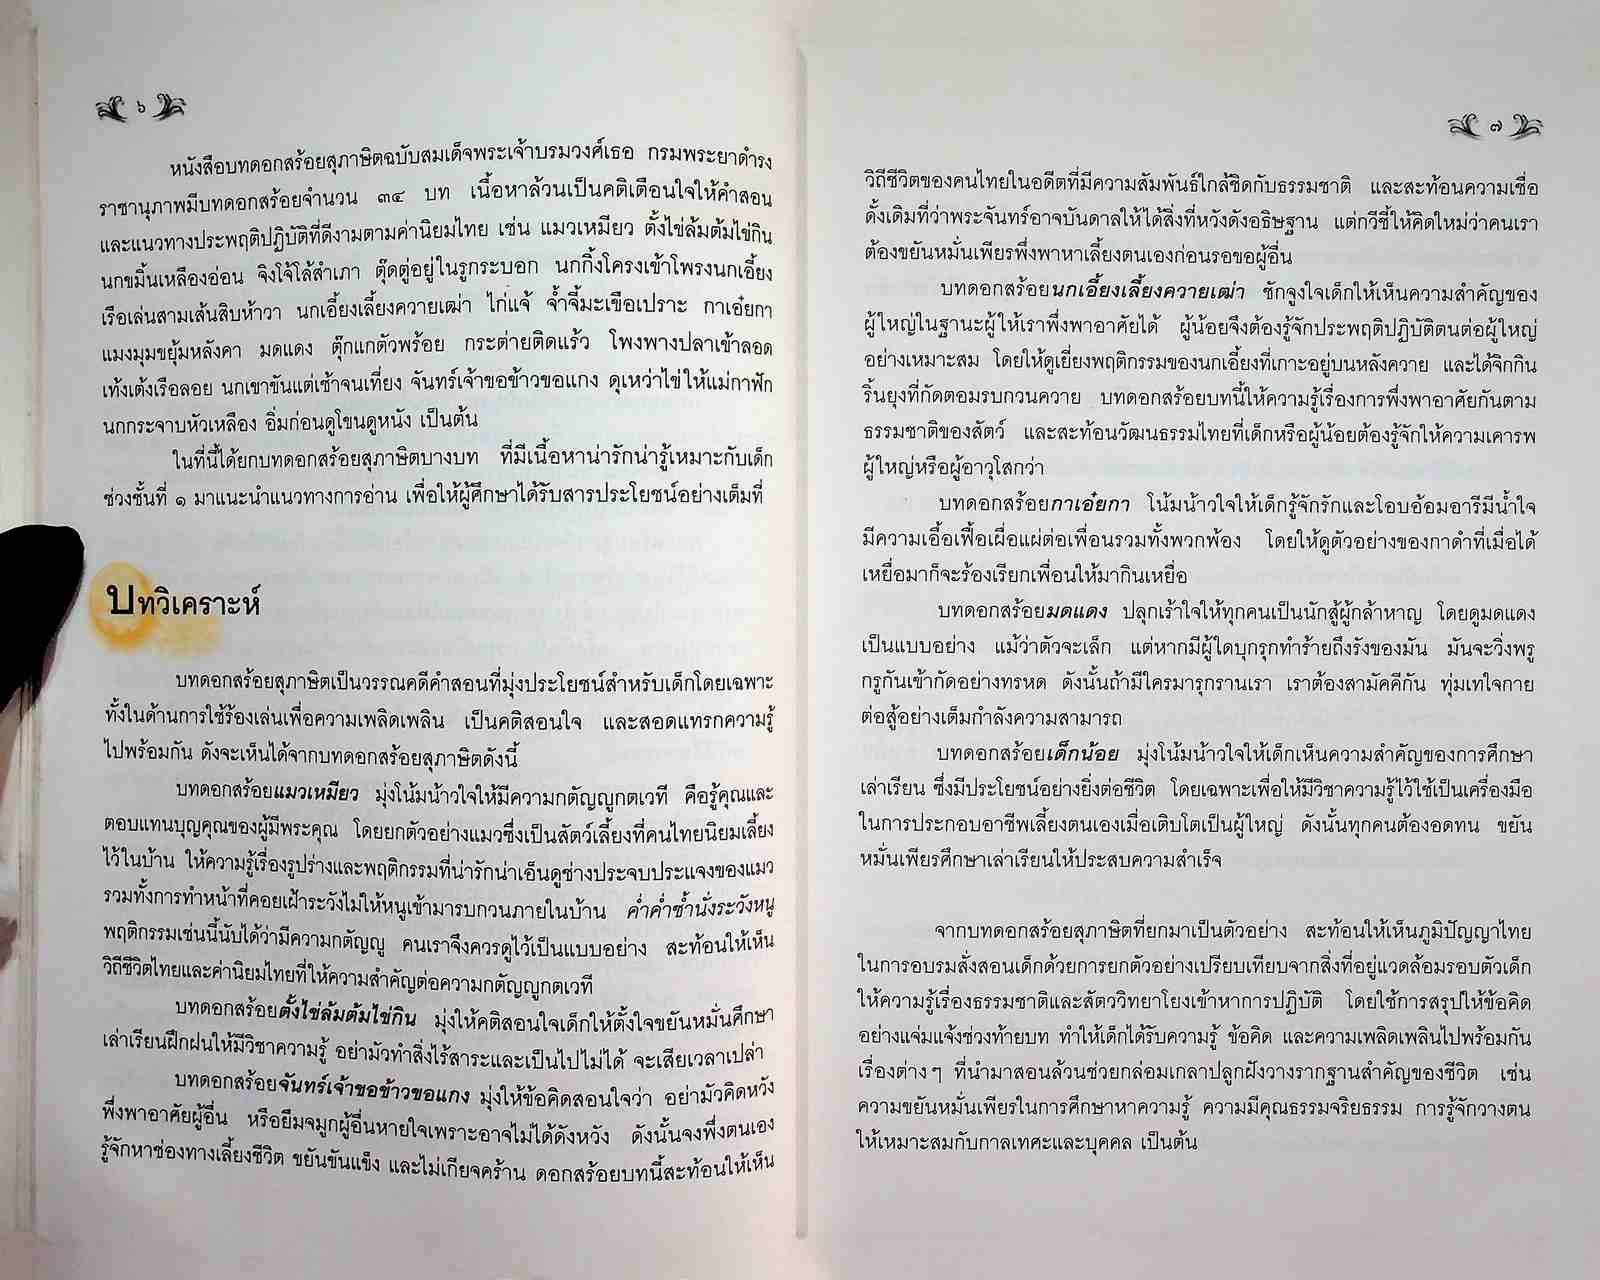 ๖
หนังสือบทดอกสร้อยสุภาษิตฉบับสมเด็จพระเจ้าบรมวงศ์เธอ กรมพระยาดำรง
ราชานุภาพมีบทดอกสร้อยจำนวน ๓๔ บท เนื้อหาล้วนเป็นคติเตือนใจให้คำสอน
และแนวทางประพฤติปฏิบัติที่ดีงามตามค่านิยมไทย เช่น แมวเหมียว ตั้งไข่ล้มต้มไข่กิน
นกขมิ้นเหลืองอ่อน จิงโจ้โล้สำเภา ตุ๊ดตู่อยู่ในรูกระบอก นกกิ้งโครงเข้าโพรงนกเอี้ยง
เรือเล่นสามเส้นสิบห้าวา นกเอี้ยงเลี้ยงควายเฒ่า ไก่แจ้ จ้ำจี้มะเขือเปราะ กาเอ๋ยกา
แมงมุมขยุ้มหลังคา มดแดง ตุ๊กแกตัวพร้อย กระต่ายติดแร้ว โพงพางปลาเข้าลอด
เท้งเต้งเรือลอย นกเขาขันแต่เช้าจนเที่ยง จันทร์เจ้าขอข้าวขอแกง ดุเหว่าไข่ให้แม่กาฟัก
นกกระจาบหัวเหลือง อิ่มก่อนดูโขนดูหนัง เป็นต้น
ในที่นี้ได้ยกบทดอกสร้อยสุภาษิตบางบท ที่มีเนื้อหาน่ารักน่ารู้เหมาะกับเด็ก
ช่วงชั้นที่ ๑ มาแนะนำแนวทางการอ่าน เพื่อให้ผู้ศึกษาได้รับสารประโยชน์อย่างเต็มที่
บทวิเคราะห์
บทดอกสร้อยสุภาษิตเป็นวรรณคดีคำสอนที่มุ่งประโยชน์สำหรับเด็กโดยเฉพาะ
ทั้งในด้านการใช้ร้องเล่นเพื่อความเพลิดเพลิน เป็นคติสอนใจ และสอดแทรกความรู้
ไปพร้อมกัน ดังจะเห็นได้จากบทดอกสร้อยสุภาษิตดังนี้
บทดอกสร้อยแมวเหมียว มุ่งโน้มน้าวใจให้มีความกตัญญูกตเวที คือรู้คุณและ
ตอบแทนบุญคุณของผู้มีพระคุณ โดยยกตัวอย่างแมวซึ่งเป็นสัตว์เลี้ยงที่คนไทยนิยมเลี้ยง
ไว้ในบ้าน ให้ความรู้เรื่องรูปร่างและพฤติกรรมที่น่ารักน่าเอ็นดูช่างประจบประแจงของแมว
รวมทั้งการทำหน้าที่คอยเฝ้าระวังไม่ให้หนูเข้ามารบกวนภายในบ้าน ค่ำค่ำซ้ำนั่งระวังหนู
พฤติกรรมเช่นนี้นับได้ว่ามีความกตัญญู คนเราจึงควรดูไว้เป็นแบบอย่าง สะท้อนให้เห็น
วิถีชีวิตไทยและค่านิยมไทยที่ให้ความสำคัญต่อความกตัญญูกตเวที
บทดอกสร้อยตั้งไข่ล้มต้มไข่กิน มุ่งให้คติสอนใจเด็กให้ตั้งใจขยันหมั่นศึกษา
เล่าเรียนฝึกฝนให้มีวิชาความรู้ อย่ามัวทำสิ่งไร้สาระและเป็นไปไม่ได้ จะเสียเวลาเปล่า
บทดอกสร้อยจันทร์เจ้าขอข้าวขอแกง มุ่งให้ข้อคิดสอนใจว่า อย่ามัวคิดหวัง
พึ่งพาอาศัยผู้อื่น หรือยืมจมูกผู้อื่นหายใจเพราะอาจไม่ได้ดังหวัง ดังนั้นจงพึ่งตนเอง
รู้จักหาช่องทางเลี้ยงชีวิต ขยันขันแข็ง และไม่เกียจคร้าน ดอกสร้อยบทนี้สะท้อนให้เห็น
๗
วิถีชีวิตของคนไทยในอดีตที่มีความสัมพันธ์ใกล้ชิดกับธรรมชาติ และสะท้อนความเชื่อ
ดั้งเดิมที่ว่าพระจันทร์อาจบันดาลให้ได้สิ่งที่หวังดังอธิษฐาน แต่กวีชี้ให้คิดใหม่ว่าคนเรา
ต้องขยันหมั่นเพียรพึ่งพาหาเลี้ยงตนเองก่อนรอขอผู้อื่น
บทดอกสร้อยนกเอี้ยงเลี้ยงควายเฒ่า ชักจูงใจเด็กให้เห็นความสำคัญของ
ผู้ใหญ่ในฐานะผู้ให้เราพึ่งพาอาศัยได้ ผู้น้อยจึงต้องรู้จักประพฤติปฏิบัติตนต่อผู้ใหญ่
อย่างเหมาะสม โดยให้ดูเยี่ยงพฤติกรรมของนกเอี้ยงที่เกาะอยู่บนหลังควาย และได้จิกกิน
ริ้นยุงที่กัดตอมรบกวนควาย บทดอกสร้อยบทนี้ให้ความรู้เรื่องการพึ่งพาอาศัยกันตาม
ธรรมชาติของสัตว์ และสะท้อนวัฒนธรรมไทยที่เด็กหรือผู้น้อยต้องรู้จักให้ความเคารพ
ผู้ใหญ่หรือผู้อาวุโสกว่า
บทดอกสร้อยกาเอ๋ยกา โน้มน้าวใจให้เด็กรู้จักรักและโอบอ้อมอารีมีน้ำใจ
มีความเอื้อเฟื้อเผื่อแผ่ต่อเพื่อนรวมทั้งพวกพ้อง โดยให้ดูตัวอย่างของกาดำที่เมื่อได้
เหยื่อมาก็จะร้องเรียกเพื่อนให้มากินเหยื่อ
บทดอกสร้อยมดแดง ปลุกเร้าใจให้ทุกคนเป็นนักสู้ผู้กล้าหาญ โดยดูมดแดง
เป็นแบบอย่าง แม้ว่าตัวจะเล็ก แต่หากมีผู้ใดบุกรุกทำร้ายถึงรังของมัน มันจะวิ่งพรู
กรูกันเข้ากัดอย่างทรหด ดังนั้นถ้ามีใครมารุกรานเรา เราต้องสามัคคีกัน ทุ่มเทใจกาย
ต่อสู้อย่างเต็มกำลังความสามารถ
บทดอกสร้อยเด็กน้อย มุ่งโน้มน้าวใจให้เด็กเห็นความสำคัญของการศึกษา
เล่าเรียน ซึ่งมีประโยชน์อย่างยิ่งต่อชีวิต โดยเฉพาะเพื่อให้มีวิชาความรู้ไว้ใช้เป็นเครื่องมือ
ในการประกอบอาชีพเลี้ยงตนเองเมื่อเติบโตเป็นผู้ใหญ่ ดังนั้นทุกคนต้องอดทน ขยัน
หมั่นเพียรศึกษาเล่าเรียนให้ประสบความสำเร็จ
จากบทดอกสร้อยสุภาษิตที่ยกมาเป็นตัวอย่าง สะท้อนให้เห็นภูมิปัญญาไทย
ในการอบรมสั่งสอนเด็กด้วยการยกตัวอย่างเปรียบเทียบจากสิ่งที่อยู่แวดล้อมรอบตัวเด็ก
ให้ความรู้เรื่องธรรมชาติและสัตววิทยาโยงเข้าหาการปฏิบัติ โดยใช้การสรุปให้ข้อคิด
อย่างแจ่มแจ้งช่วงท้ายบท ทำให้เด็กได้รับความรู้ ข้อคิด และความเพลิดเพลินไปพร้อมกัน
เรื่องต่างๆ ที่นำมาสอนล้วนช่วยกล่อมเกลาปลูกฝังวางรากฐานสำคัญของชีวิต เช่น
ความขยันหมั่นเพียรในการศึกษาหาความรู้ ความมีคุณธรรมจริยธรรม การรู้จักวางตน
ให้เหมาะสมกับกาลเทศะและบุคคล เป็นต้น